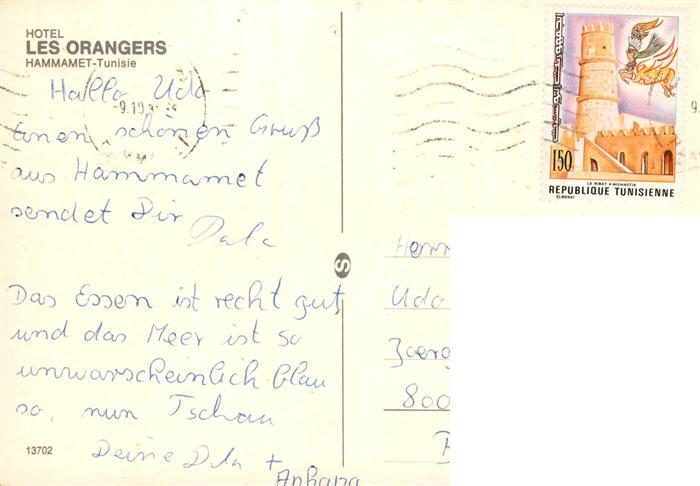 HOTEL
LES ORANGERS
HAMMAMET-Tunisie
Hallo Udo
Einen schönen Gruß
aus Hammamet
sendet Dir
Das Essen ist recht gut
und das Meer ist so
unwarscheinlich blau
so, nun Tschau
Deine +
Anhang
13702
S
9.10
150
LE RIBAT * MONASTIR
REPUBLIQUE TUNISIENNE
ELMEKKI
Herr
Udo
800